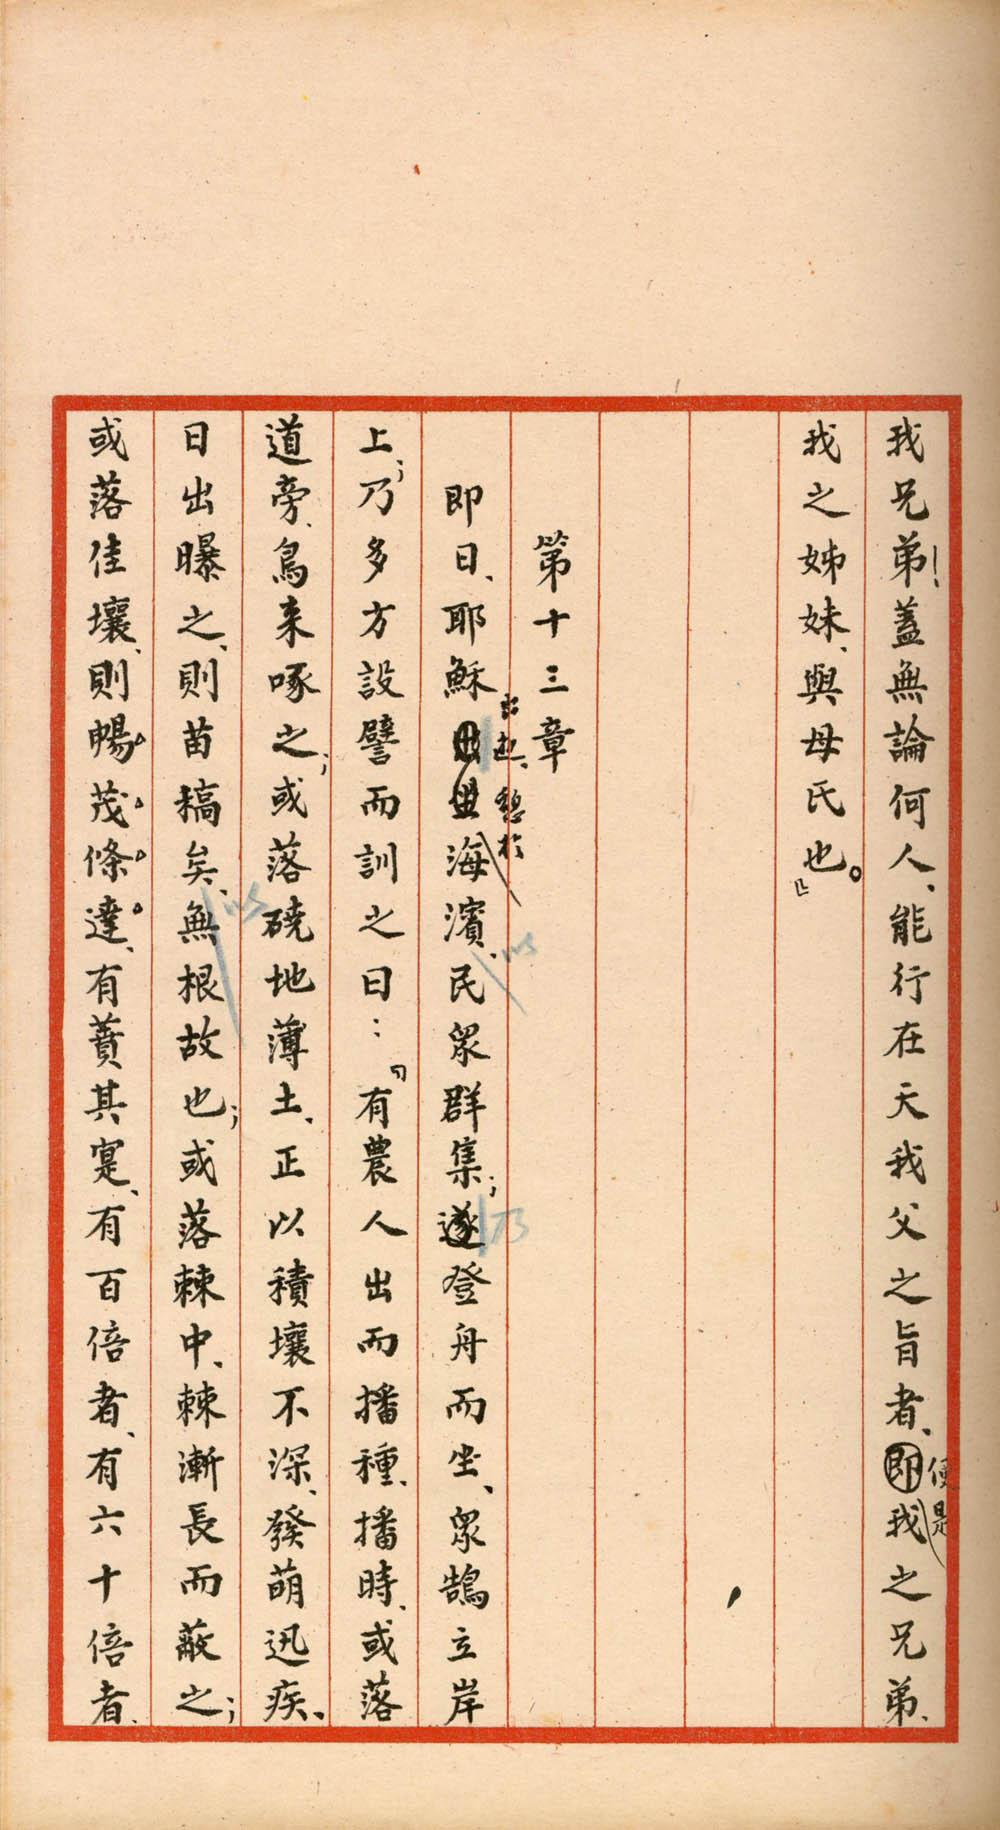 我兄弟！蓋無論何人、能行在天我父之旨者、即便是我之兄弟、
我之姊妹、與母氏也。」
第十三章
即日、耶穌出遊、憩於海濱、以民眾群集；遂乃登舟而坐、眾鵠立岸
上；乃多方設譬而訓之曰：「有農人出而播種、播時、或落
道旁、鳥来啄之；或落磽地薄土、正以積壤不深、發萌迅疾、
日出曝之、則苗稿矣、以無根故也；或落棘中、棘漸長而蔽之；
或落佳壤、則暢茂條達、有蕡其寔、有百倍者、有六十倍者、